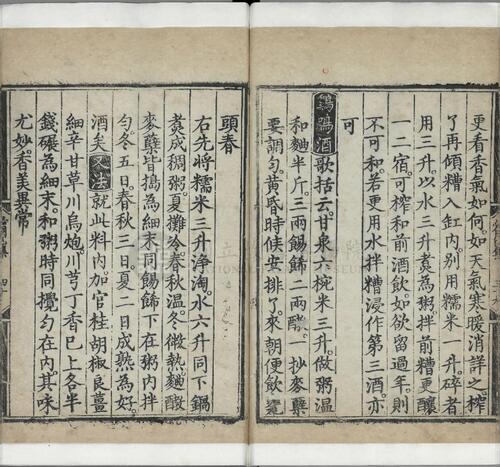 更看香氣如何如天氣寒暖消詳之榨
了再傾糟入缸內別用糯米一升碎者
用三升以水三升煑為粥拌前糟更釀
一二宿可榨和前酒飲如欲留過年則
不可和若更用水拌糟浸作第三酒亦
可
鷄鳴酒歌括云甘泉六椀米三升做粥溫
和麯半斤三兩餳餙二兩酵一抄麥糵
要調勻黃昏時候安排了來朝便飲甕
頭春
右先將糯米三升净淘水六升同下鍋
煑成稠粥夏攤冷春秋溫冬微熱麯酵
麥糵皆搗為細末同餳餙下在粥內拌
勻冬五日春秋三日夏二日成熟為好
酒矣又法就此料內加官桂胡椒良薑
細辛甘草川烏炮川芎丁香已上各半
錢碾為細末和粥時同攪勻在內其味
尤妙香美異常